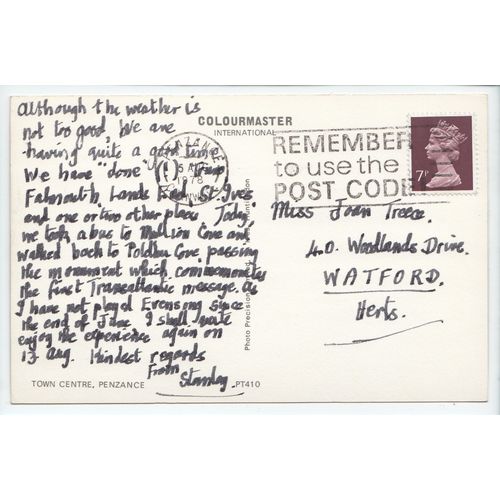 Although the weather is
not too good, we are
having quite a good time
We have "done"
Falmouth, Lands End, St. Ives
and one or two other places. Today,
we took a bus to Mullion Cove and
walked back to Poldhu Cove, passing
the monument which commemorates
the first Transatlantic message. As
I have not played Evensong since
the end of June I shall quite
enjoy the experience again on
13 Aug. Kindest regards
From
Stanley
COLOURMASTER
INTERNATIONAL
PENZANCE
1978
REMEMBER
to use the
POST CODE
7P
Miss Joan Treece.
40. Woodlands Drive.
WATFORD.
Herts.
Photo Precision
TOWN CENTRE, PENZANCE
PT410